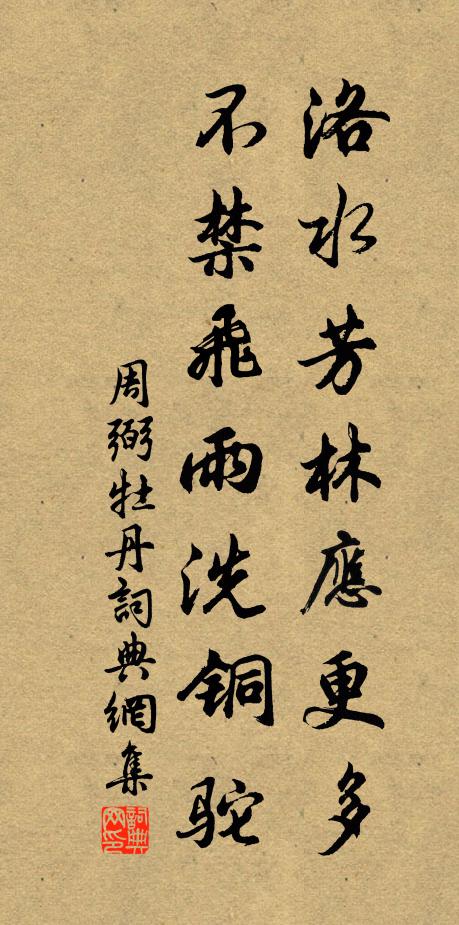 洛水芳林應更多
不禁飛雨洗铜駝
周弼牡丹詞典網集
詞典網印